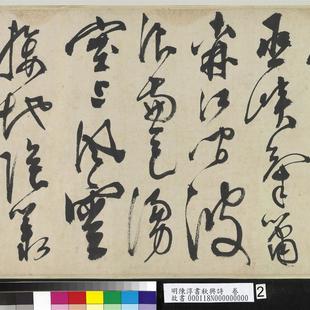 巫峽氣蕭
森江間波
浪兼天湧
塞上風雲
接地陰叢
明陳淳書秋興詩 卷
故書000118N000000000
2